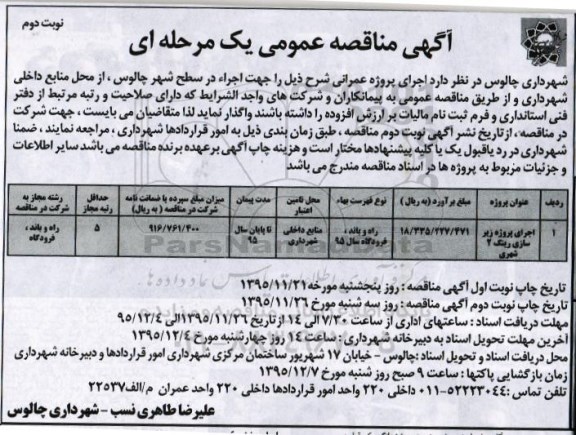 نوبت دوم
آگهی مناقصه عمومی یک مرحله ای
شهرداری چالوس در نظر دارد اجرای پروژه عمرانی شرح ذیل را جهت اجراء در سطح شهر چالوس ، از محل منابع داخلی
شهرداری و از طریق مناقصه عمومی به پیمانکاران و شرکت های واجد الشرایط که دارای صلاحیت و رتبه مرتبط از دفتر
فنی استانداری و فرم ثبت نام مالیات بر ارزش افزوده را داشته باشند واگذار نماید لذا متقاضیان می بایست ، جهت شرکت
در مناقصه ، از تاریخ نشر آگهی نوبت دوم مناقصه ، طبق زمان بندی ذیل به امور قراردادها شهرداری ، مراجعه نمایند ، ضمنا
شهرداری در رد یا قبول یک یا کلیه پیشنهادها مختار است و هزینه چاپ آگهی بر عهده برنده مناقصه می باشد سایر اطلاعات
و جزئیات مربوط به پروژه ها در اسناد مناقصه مندرج می باشد
ردیف عنوان پروژه مبلغ برآورد (به ریال) نوع فهرست بهاء محل تامین اعتبار مدت پیمان میزان مبلغ سپرده یا ضمانت نامه شرکت در مناقصه ( به ریال) حداقل رتبه مجاز رشته مجاز به شرکت در مناقصه
۱ اجرای پروژه زیر سازی رینگ ۲ شهری ۱۸/۳۳۵/۲۲۷/۴۷۱ راه و باند ، فرودگاه سال ۹۵ منابع داخلی شهرداری تا پایان سال ۹۵ ۹۱۶/۷۶۱/۴۰۰ ۵ راه و باند ، فرودگاه
ParsNamadData
تاریخ چاپ نوبت اول آگهی مناقصه : روز پنجشنبه مورخه ۱۳۹۵/۱۱/۲۱
تاریخ چاپ نوبت دوم آگهی مناقصه : روز سه شنبه مورخ ۱۳۹۵/۱۱/۲۶
مهلت دریافت اسناد : ساعتهای اداری از ساعت ۷/۳۰ الی ۱۴ از تاریخ ۱۳۹۵/۱۱/۲۶ الی ۹۵/۱۲/۴
آخرین مهلت تحویل اسناد به دبیرخانه شهرداری : ساعت ۱۴ روز چهارشنبه مورخ ۱۳۹۵/۱۲/۴
محل دریافت اسناد و تحویل اسناد :چالوس - خیابان ۱۷ شهریور ساختمان مرکزی شهرداری امور قراردادها و دبیرخانه شهرداری
زمان بازگشایی پاکتها : ساعت ۹ صبح روز شنبه مورخ ۱۳۹۵/۱۲/۷
تلفن تماس : ۵۲۲۲۳۰۴۴-۰۱۱ داخلی ۲۲۰ واحد امور قراردادها داخلی ۲۲۰ واحد عمران م/الف ۲۲۵۳۷
علیرضا طاهری نسب - شهرداری چالوس